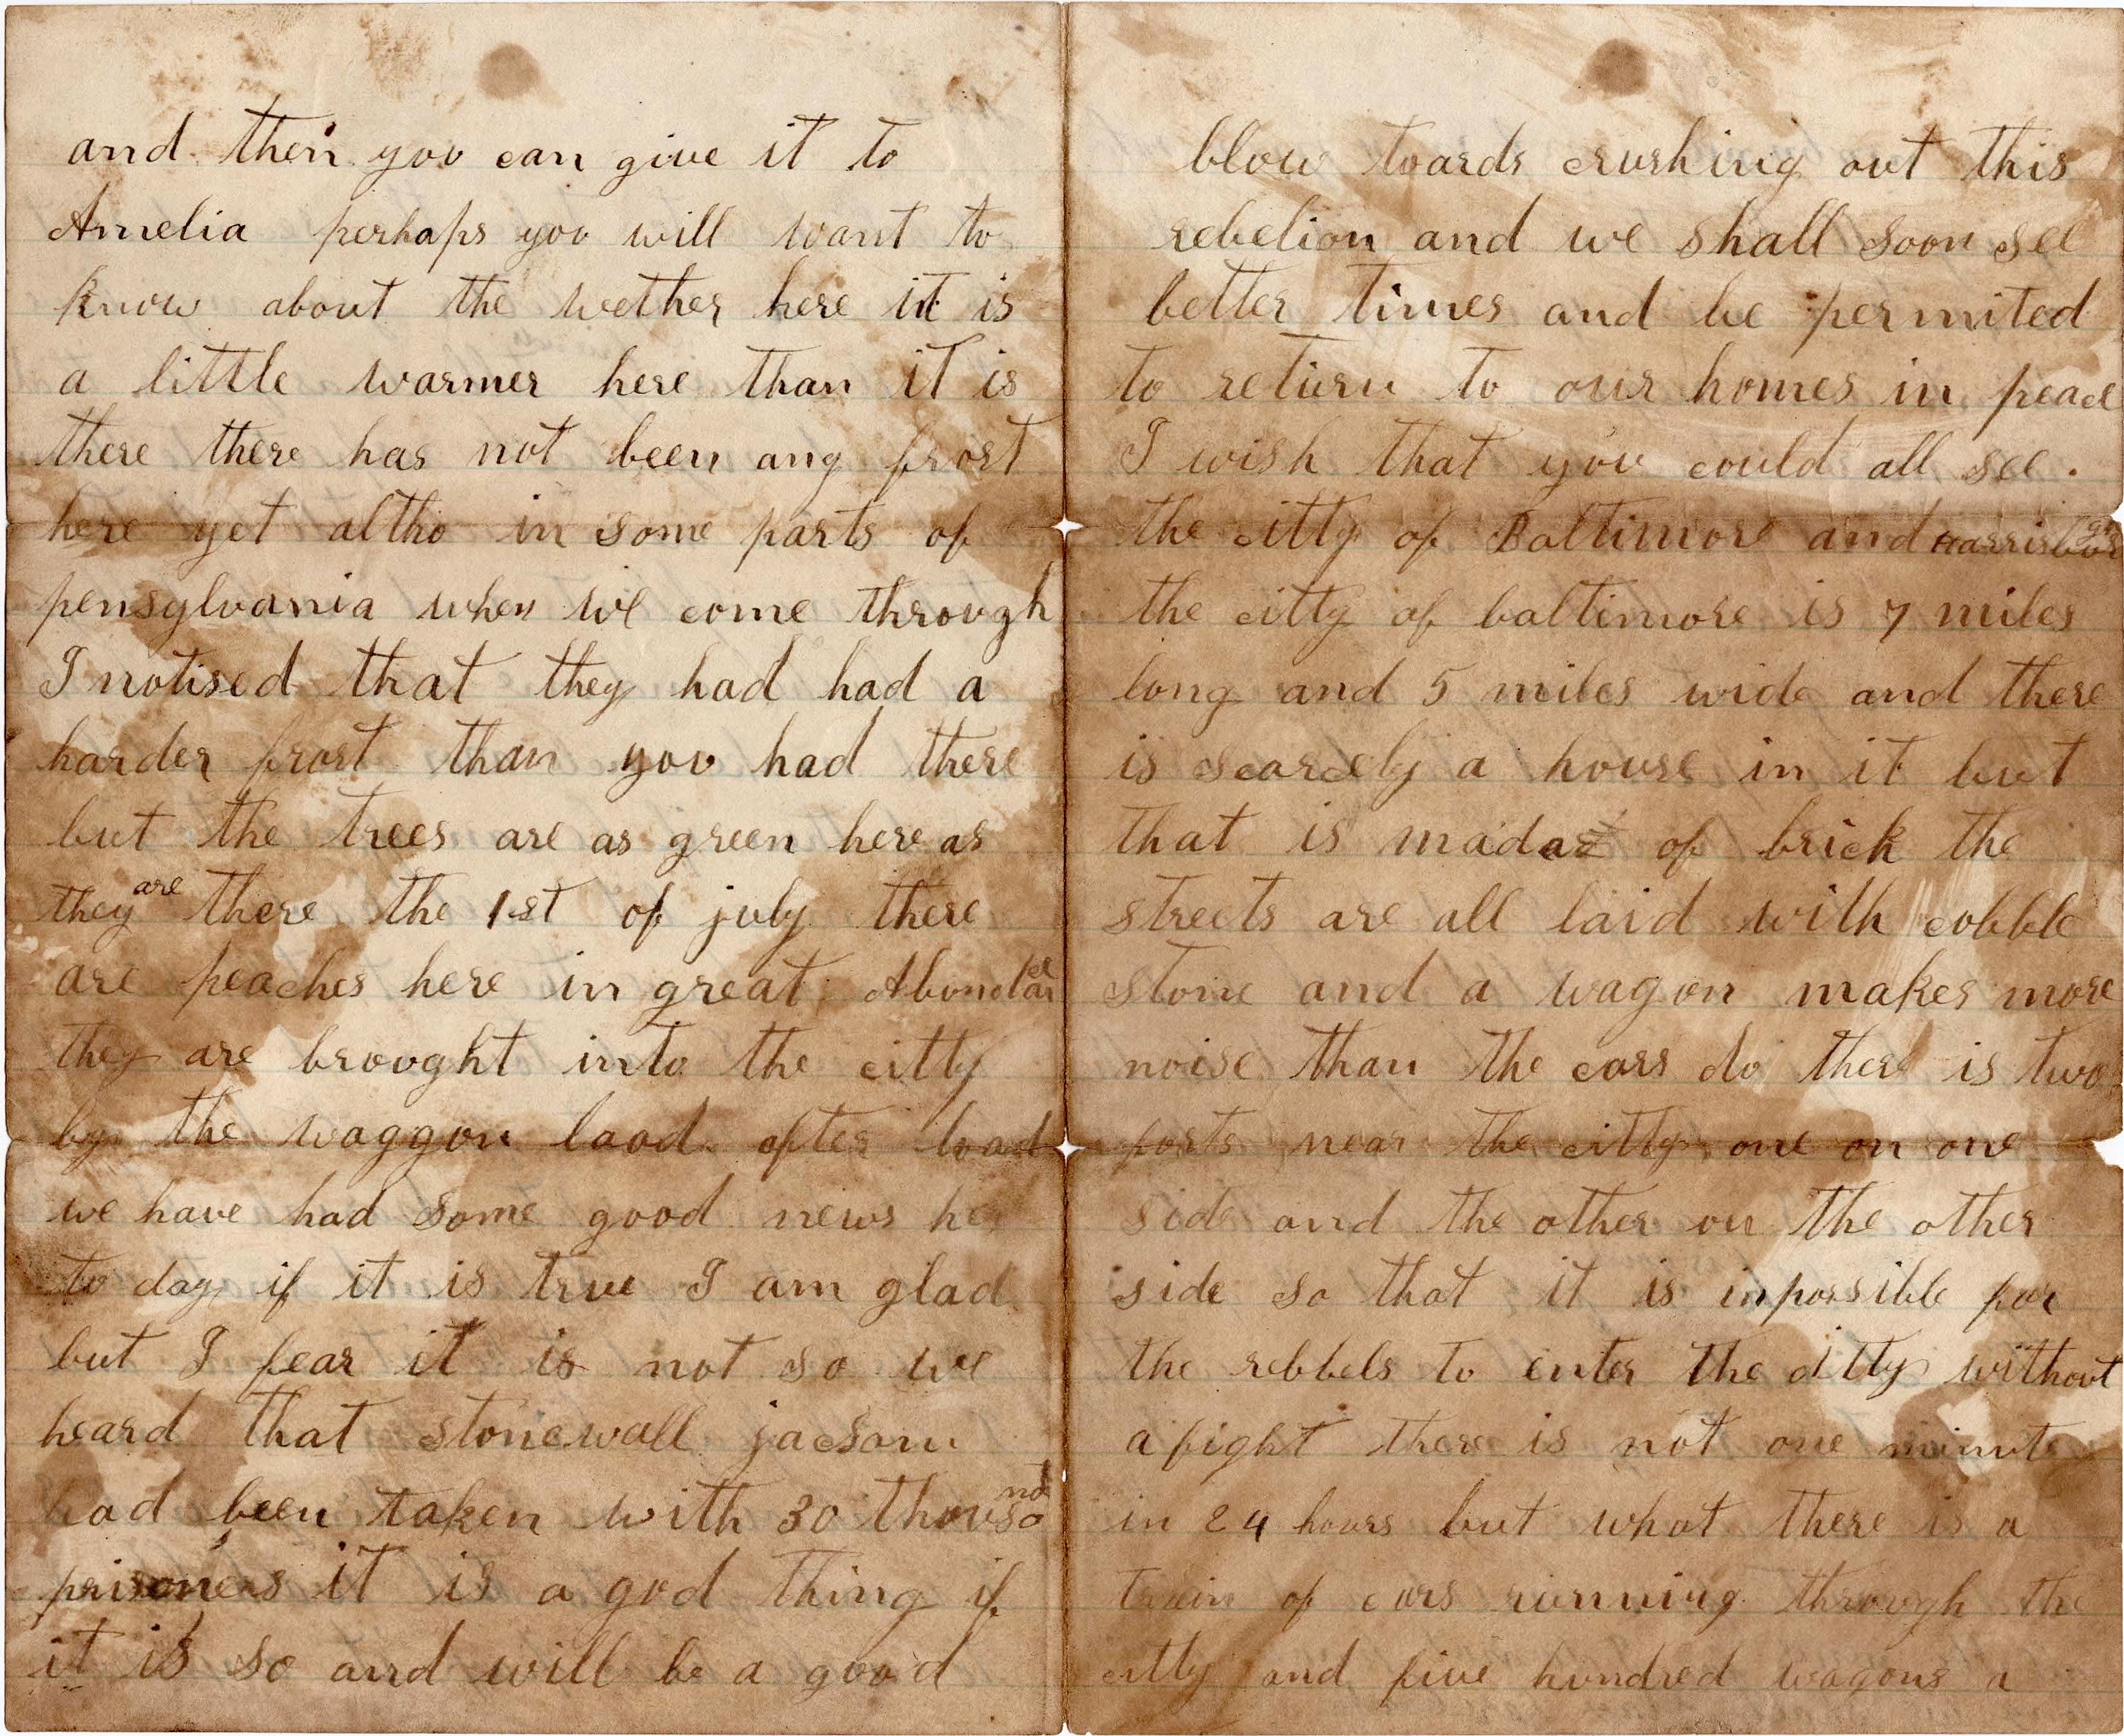 and then you can give it to
Amelia perhaps you will want to
know about the wether here it is
a little warmer here than it is
there there has not been any frost
here yet altho in some parts of
pensylvania when we come through
I notised that they had had a
harder frost than you had there
but the trees are as green here as
they are there the 1st of july there
are peaches here in great
they are brought into the citty
by the waggon laod after load
we have had some good news
to day if it is true I am glad
but I fear it is not so we
heard that stonewall jacson
had been taken with 30 thousand
prisoners it is a god thing if
it is so and will be a good
blow toards crushing out this
rebelion and we shall soon see
better times and be permited
to return to our homes in peace
I wish that you could all see.
the citty of Baltimore and
the citty of baltimore is 7 miles
long and 5 miles wide and there
is scarcely a house in it but
that is of brick the
streets are all laid with cobble
stone and a wagon makes more
noise than the cars do there is two
forts near the citty one on one
side and the other on the other
side so that it is inpossible for
the rebbels to enter the citty without
a fight there is not one minute
in 24 hours but what there is a
train of cars running through the
citty and five hundred wagons a